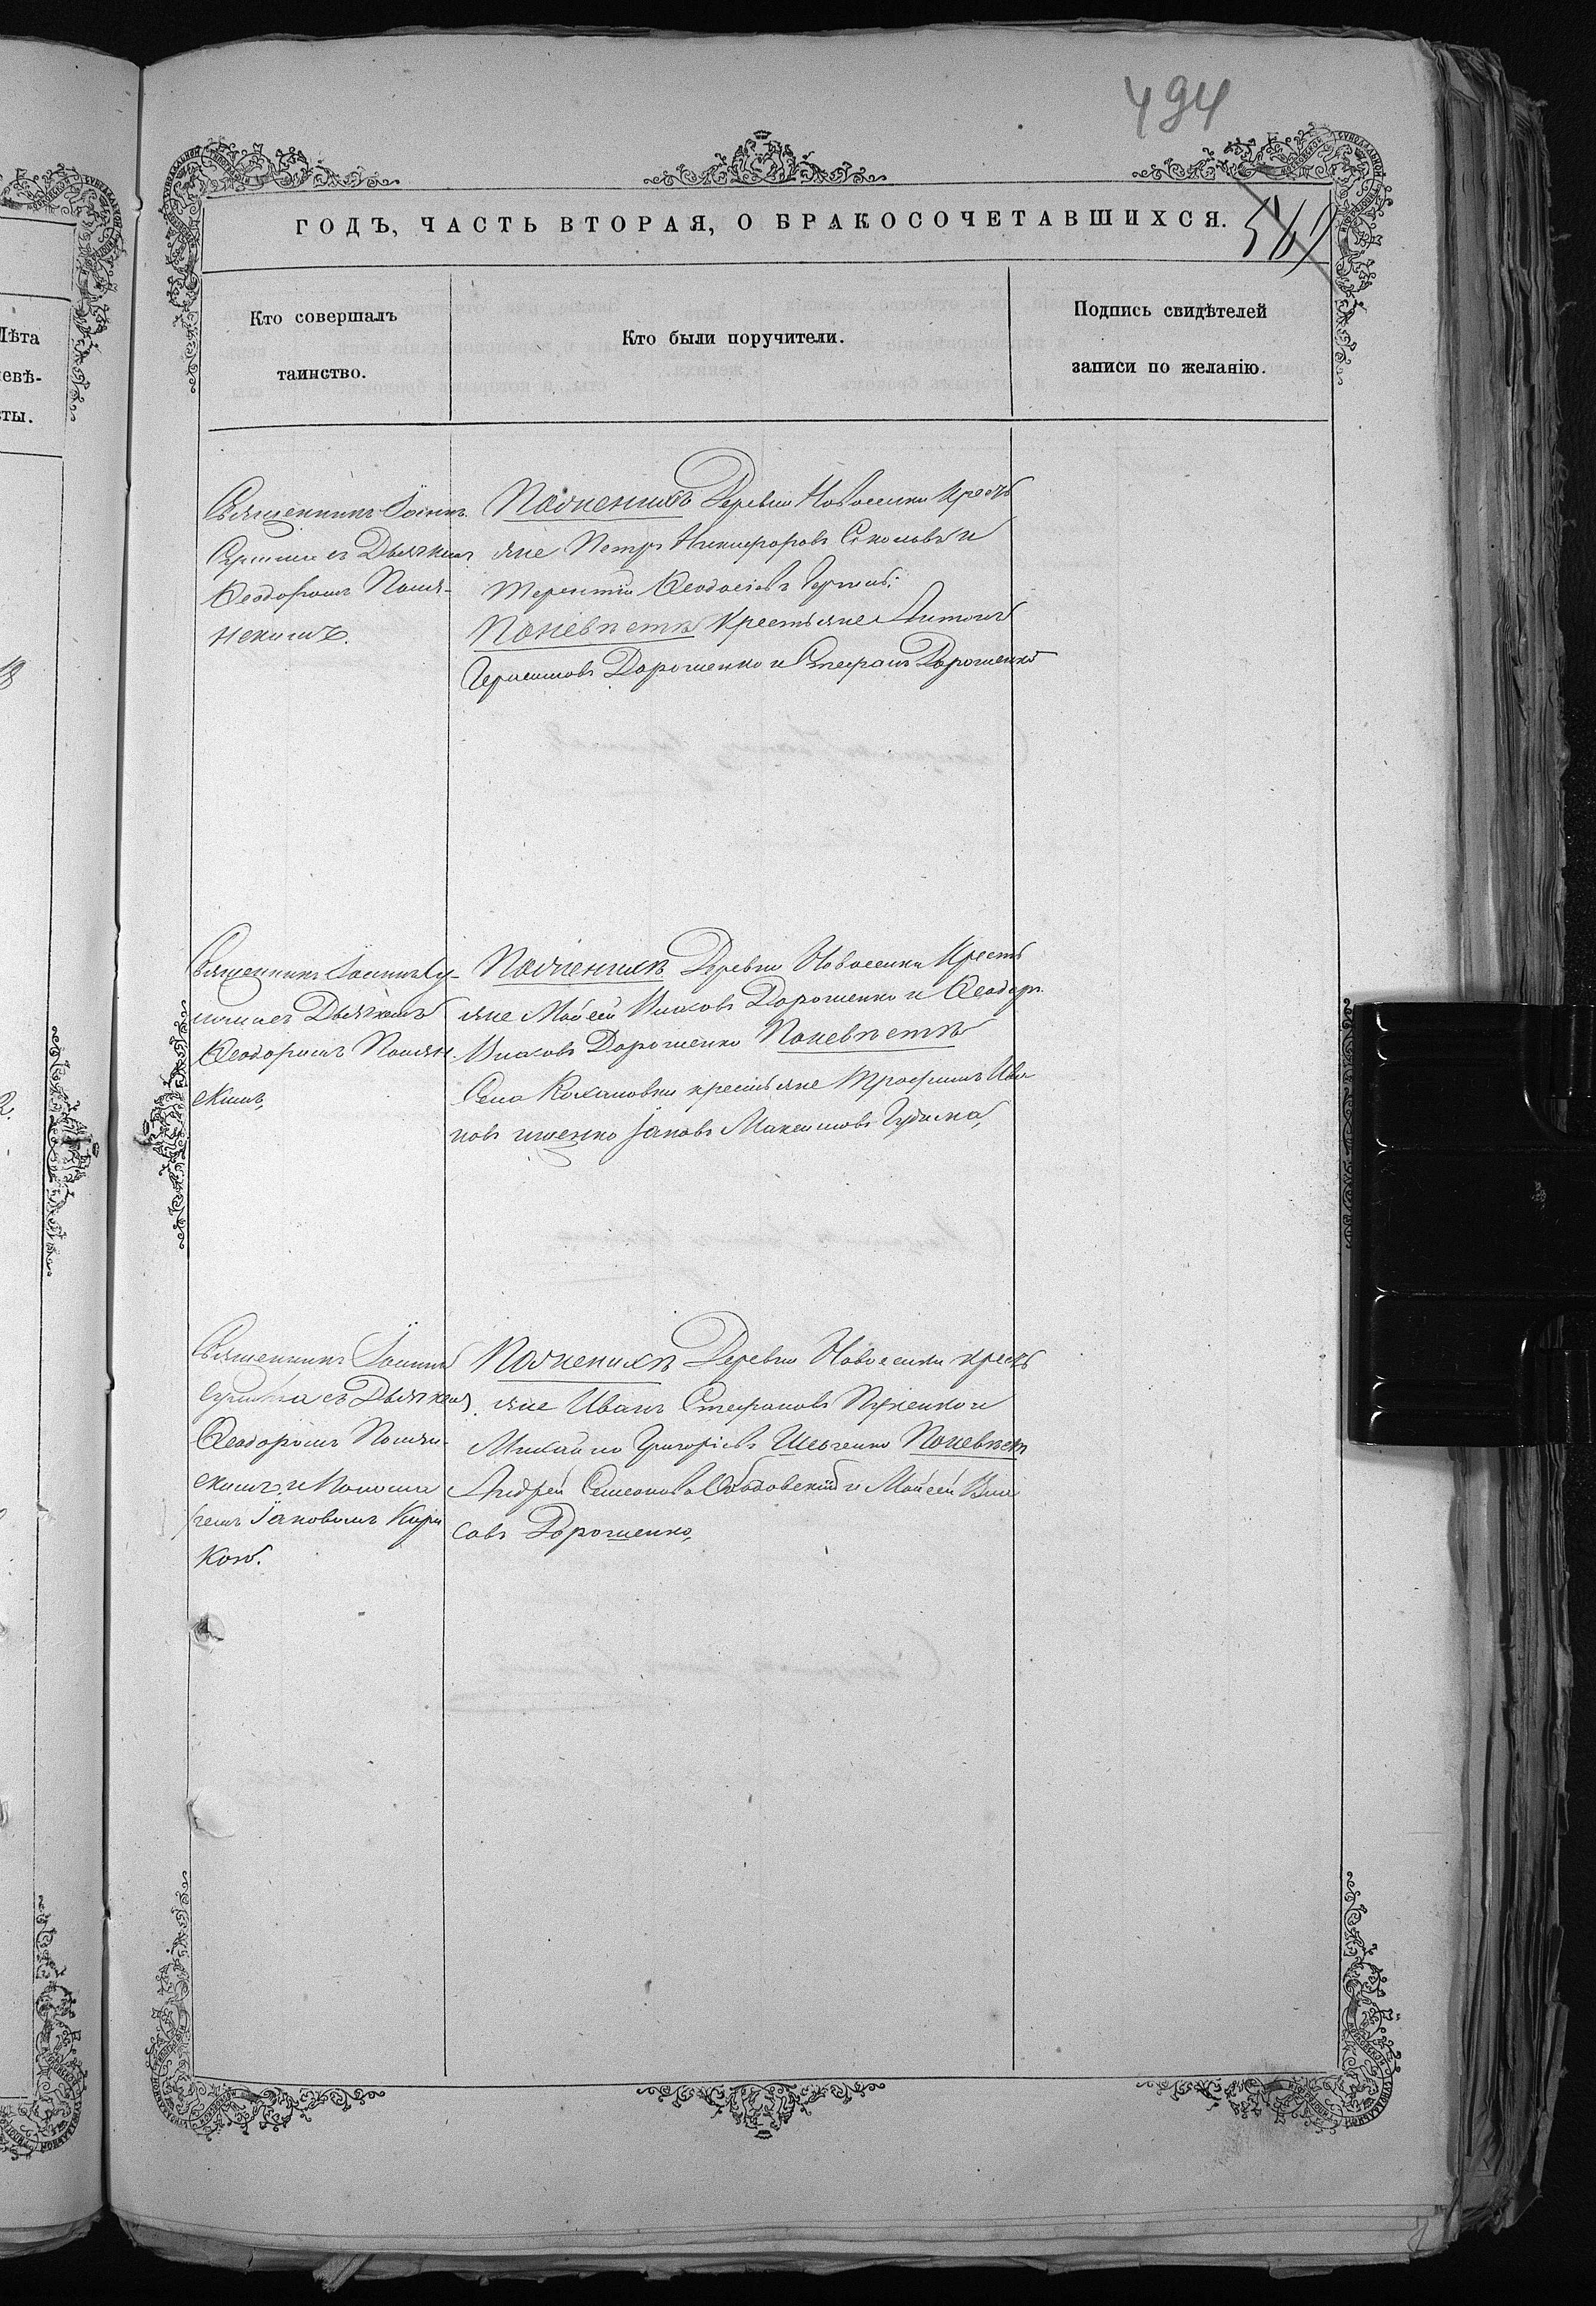 494
ГОДЪ, ЧАСТЬ ВТОРАЯ, О БРАКОСОЧЕТАВШИХСЯ.
Лѣта
невѣ-
сты.
Кто совершалъ
таинство.
Кто были поручители.
Подпись свидѣтелей
записи по желанію.
Священникъ Іоаннъ
съ Дьячкомъ
Ѳеодоромъ Поля-
нскимъ.
По женихѣ Деревни Новоселки крестъ
яне Петръ Никифоровъ Соколовъ и
Терентій Ѳеодосіевъ
По невѣстѣ крестьяне Антонъ
Герасимовъ Дорошенко и Стефанъ Дорошенко
Священникъ Іоаннъ Су-
Дьячкомъ
Ѳеодоромъ Полян-
скимъ,
По женихѣ Деревни Новоселки крестъ
яне Мойсей Власовъ Дорошенко и Ѳеодоръ
Власовъ Дорошенко По невѣстѣ
Села Кохановки крестьяне Трофимъ Ива
новъ Іаковъ Максимовъ Гудыма,
Священникъ Іоаннъ
съ Дьячкомъ
Ѳеодоромъ Полян-
скимъ, и Пономар
Іаковомъ
По женихѣ Деревни Новоселки крестъ
яне Иванъ Стефановъ и
Михаило Григоріевъ Шевченко По невѣст
Андрей Симеоновъ и Мойсей Вла
совъ Дорошенко,